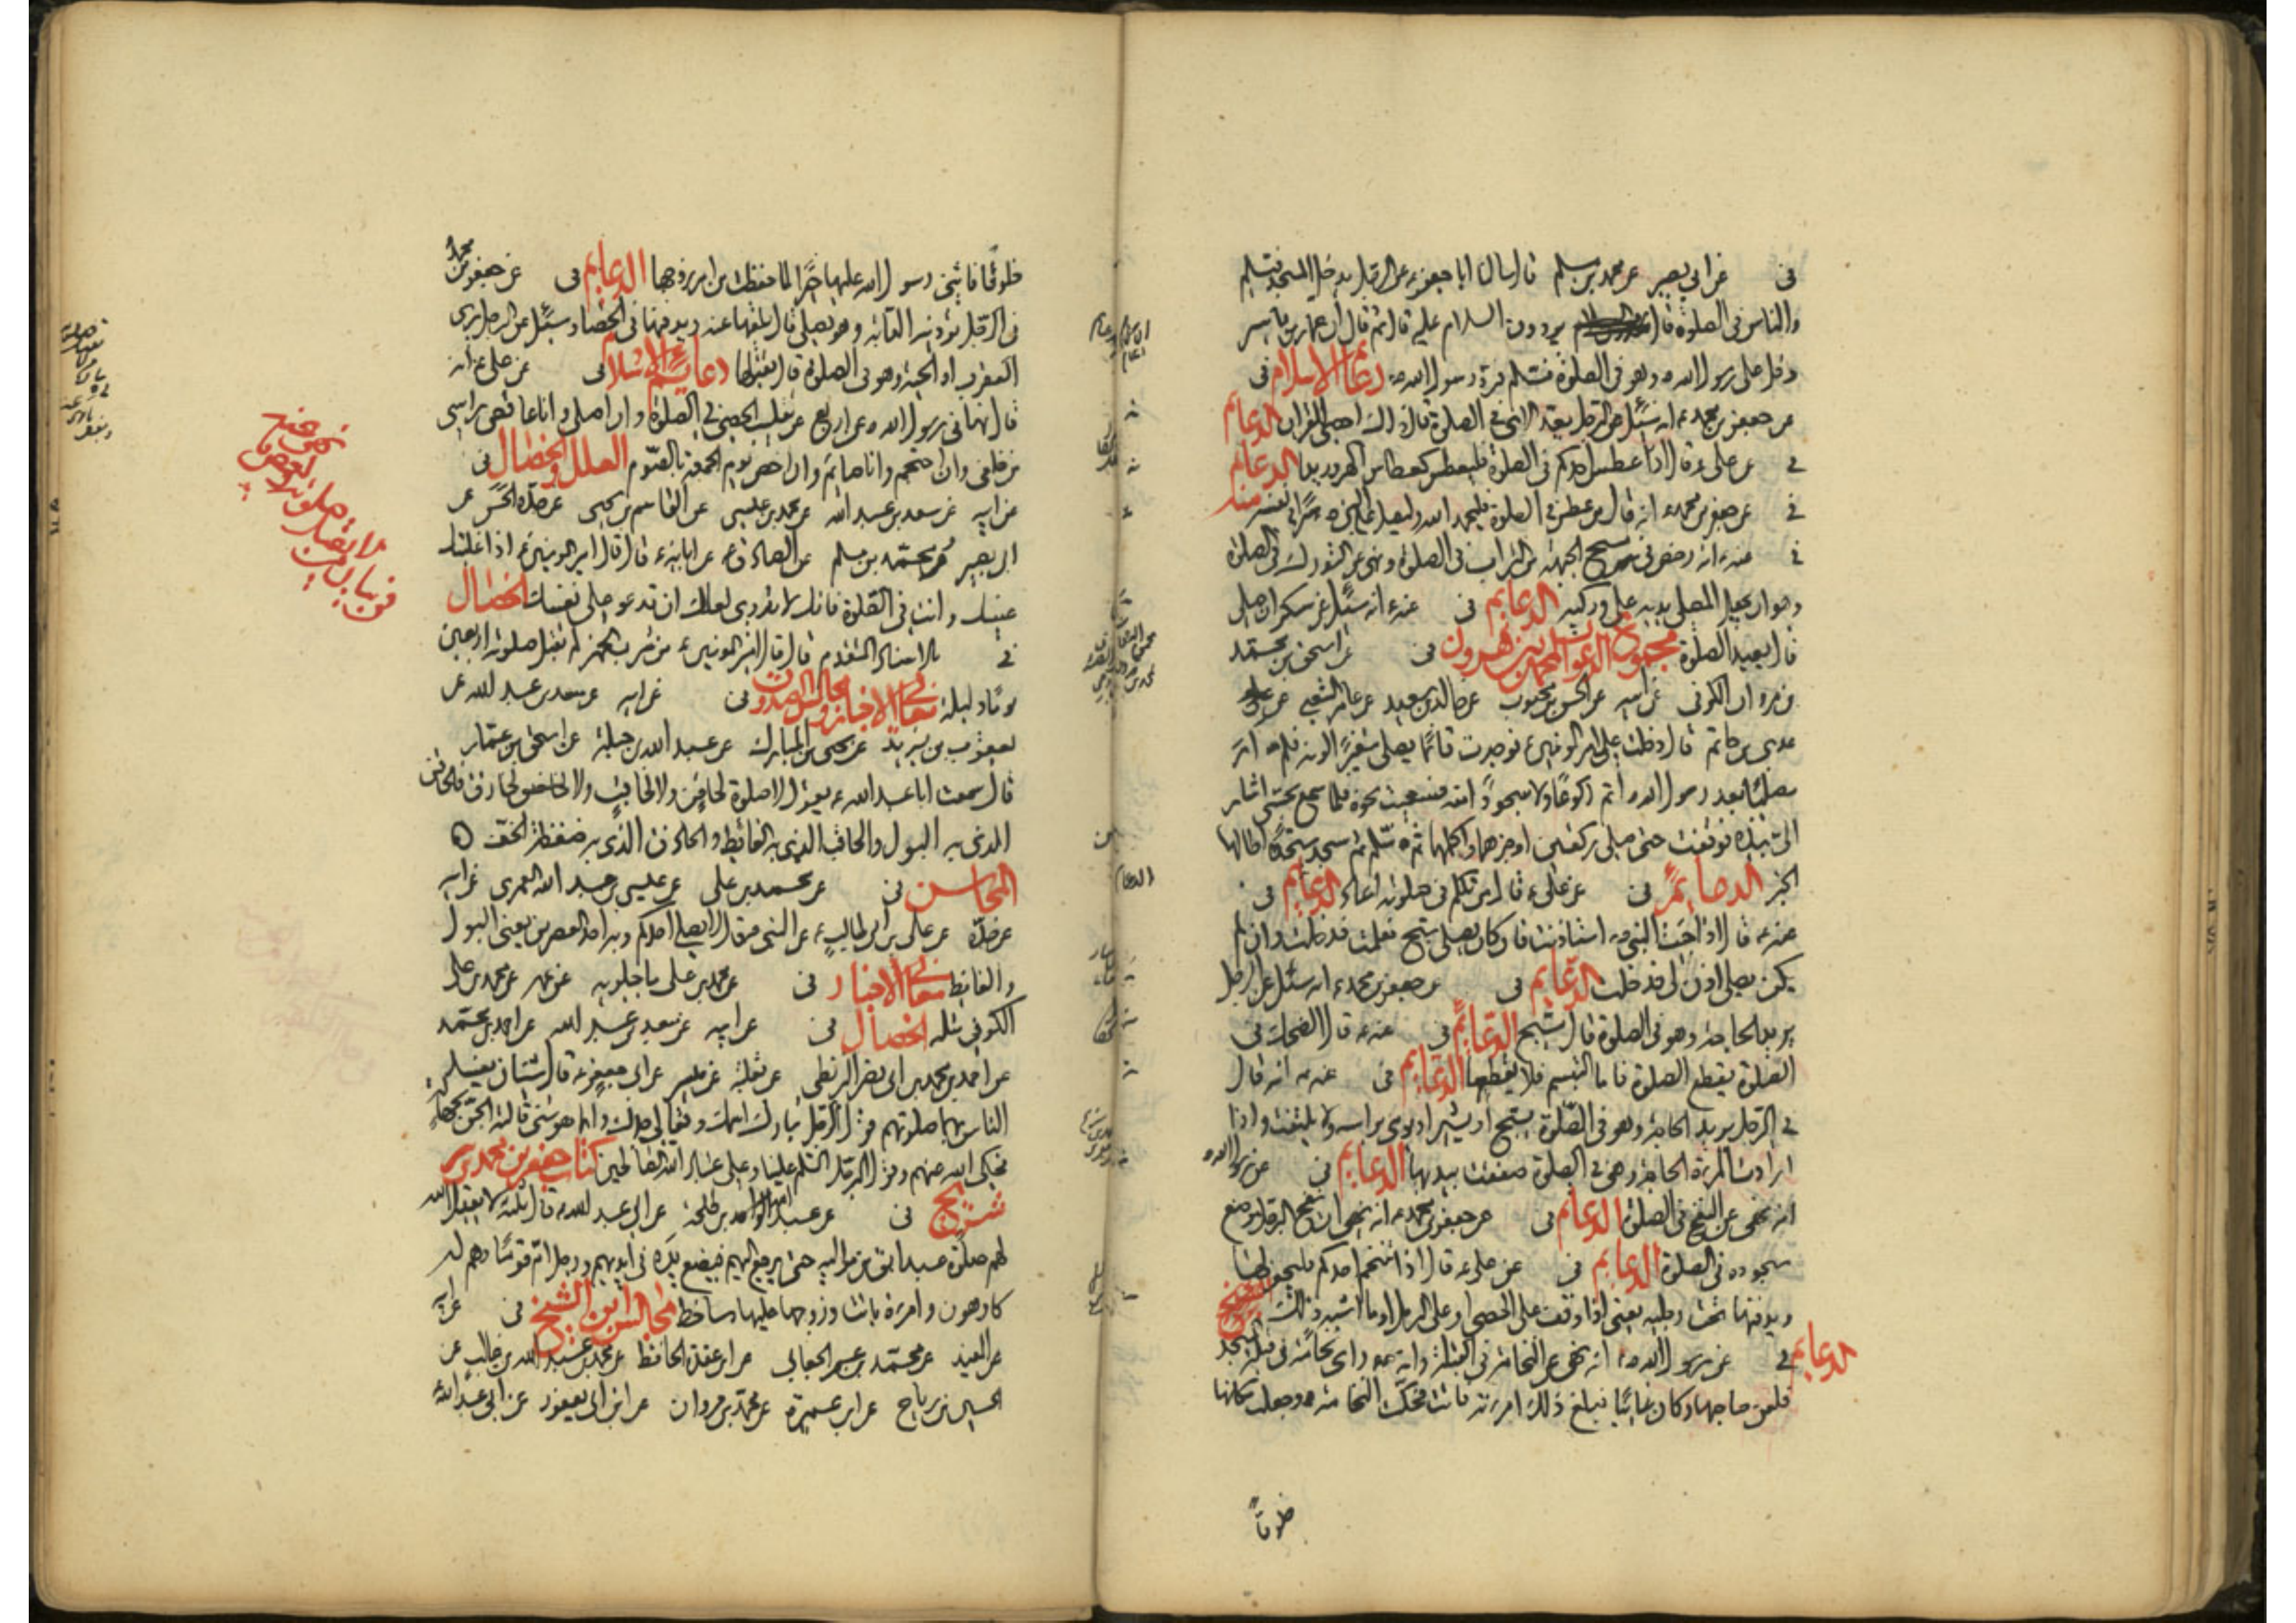 فى عن ابى بصير عن محمد بن مسلم قال سالت ابا جعفر ع عن الرجل يدخل المسجد فيسلم
والناس فى الصلوة قال يردون السلام عليه قال ثم قال ان عمار بن ياسر
دخل على رسول الله ص وهو فى الصلوة فسلم فرد رسول الله ص دعائم الاسلام فى
عن جعفر بن محمد ع انه سئل عن الرجل يعد الاى فى الصلوة قال ذلك احصى القران الدعايم
فى عن على ع قال اذا عطس احدكم فى الصلوة فليعطس كعطاس الهر رويدا الدعايم
فى عن جعفر بن محمد ع انه قال من عطس فى الصلوة فليحمد الله وليصل على النبى ص سرا فى نفسه
فى عنه ع انه رخص فى مسح الجبهة من التراب فى الصلوة ونهى عن التورك فى الصلوة
وهو ان يجعل المصلى يديه على وركيه الدعايم فى عنه ع انه سئل عن سكران صلى
قال يعيد الصلوة مجموع الدعوات لمحمد بن هرون فى عن اسحق بن محمد
بن مروان الكوفى عن ابيه عن الحسن بن محبوب عن خالد بن سعيد عن عامر الشعبى عن
عدى بن حاتم قال دخلت على امير المومنين ع فوجدت قائما يصلى متغيرا لونه فلم ار
مصليا بعد رسول الله ص اتم ركوعا ولا سجودا منه فسعيت نحوه فلما سمع بحسى اشار
الى بيده فوقفت حتى صلى ركعتين اوجزهما واكملهما ثم سلم ثم سجد سجدة اطالها
الخبر الدعايم فى عن على ع قال من تكلم فى صلوته اعاد الدعايم فى
عنه ع قال اذا جئت النبى ص استاذنت فان كان يصلى سبح فعلمت فدخلت وان لم
يكن يصلى اذن لى فدخلت الدعايم فى عن جعفر بن محمد ع انه سئل عن الرجل
يريد الحاجة وهو فى الصلوة قال يسبح الدعايم فى عنه ع قال الضحك فى
الصلوة يقطع الصلوة فاما التبسم فلا يقطعها الدعايم فى عنه ع انه قال
فى الرجل يريد الحاجة وهو فى الصلوة يسبح او يشير او يومى براسه ولا يلتفت واذا
ارادت المرءة الحاجة وهى فى الصلوة صفقت بيديها الدعايم فى عن رسول الله ص
انه نهى عن النفخ فى الصلوة الدعايم فى عن جعفر بن محمد ع انه نهى ان ينفخ الرجل موضع
سجوده فى الصلوة الدعايم فى عن على ع قال اذا تنخم احدكم فليحفر لها
ويدفنها تحت رجليه يعنى اذا وقف على الحصى او على الرمل او ما اشبه ذلك
الدعايم فى عن رسول الله ص انه نهى عن النخامة فى القبلة وانه ص راى نخامة فى قبلة المسجد
فلعن صاحبها وكان غائبا فبلغ ذلك امرءته فاتت فحكت النخامة وجعلت مكانها
خلوقا
خلوقا فاثنى رسول الله عليها خيرا لما حفظت من امر زوجها الدعايم فى عن جعفر بن محمد
فى الرجل تؤذيه الدابة وهو يصلى قال يلقيها عنه ويدفنها فى الحصا وسئل عن الرجل يرى
العقرب او الحية وهو فى الصلوة قال يقتلها دعايم الاسلام فى عن على ع انه
قال نهانى رسول الله ص عن اربع عن تقليب الحصى فى الصلوة وان اصلى وانا عاقص راسى
من خلفى وان احتجم وانا صايم وان اخص يوم الجمعة بالصوم العلل والخصال فى
عن ابيه عن سعد بن عبد الله عن محمد بن عيسى عن القاسم بن يحيى عن جده الحسن عن
ابى بصير ومحمد بن مسلم عن الصادق ع عن ابائه ع قال قال امير المومنين ع اذا غلبتك
عينك وانت فى الصلوة فانك لا تدرى لعلك ان تدعو على نفسك الخصال
فى بالاسناد المتقدم قال قال امير المومنين ع من شرب الخمر لم تقبل صلوته اربعين
يوما وليلة معانى الاخبار ومجالس الصدوق فى عن ابيه عن سعد بن عبد الله عن
يعقوب بن يزيد عن يحيى بن المبارك عن عبد الله بن جبلة عن اسحق بن عمار
قال سمعت ابا عبد الله ع يقول لا صلوة لحاقن ولا لحاقب ولا لحازق فالحاقن
الذى به البول والحاقب الذى به الغائط والحازق الذى به ضغطة الخف
المحاسن فى عن محمد بن على عن عيسى بن عبد الله العمرى عن ابيه
عن جده عن على بن ابى طالب ع عن النبى ص قال لا يصلى احدكم وبه احد العصرين يعنى البول
والغايط معانى الاخبار فى عن محمد بن على ماجيلويه عن عمه عن محمد بن على
الكوفى مثله الخصال فى عن ابيه عن سعد بن عبد الله عن احمد بن محمد
عن احمد بن محمد بن ابى نصر البزنطى عن ثعلبة عن ميسر عن ابى جعفر ع قال شيئان يفسد
الناس بهما صلوتهم قول الرجل تبارك اسمك وتعالى جدك وانما هو شى قالته الجن بجهالة
فحكى الله عنهم وقول الرجل السلم علينا وعلى عباد الله الصالحين كتاب جعفر بن محمد بن
شريح فى عن عبد الواحد بن طلحة عن ابى عبد الله ع قال ثلثة لا يقبل الله
لهم صلوة عبد ابق من مواليه حتى يرجع اليهم فيضع يده فى ايديهم ورجل ام قوما وهم له
كارهون وامرءة باتت وزوجها عليها ساخط مجالس ابن الشيخ فى عن ابيه
عن المفيد عن محمد بن عمر الجعابى عن ابن عقدة الحافظ عن محمد بن عبد الله بن غالب عن
الحسين بن رياح عن ابن عميرة عن محمد بن مروان عن ابن ابى يعفور عن ابى عبد الله